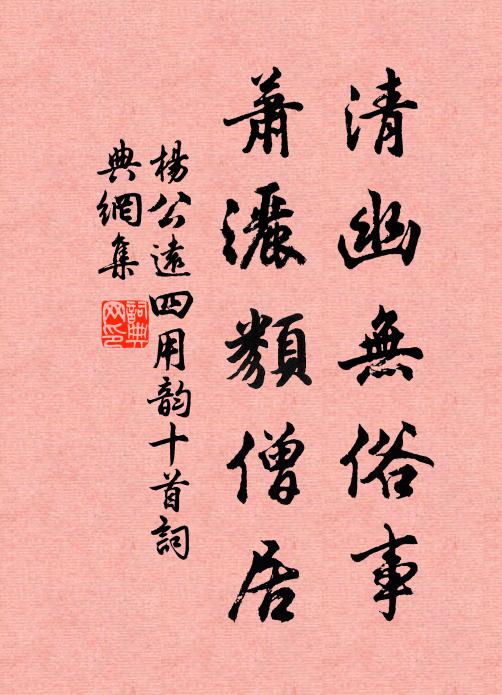 清幽無俗事
蕭灑類僧居
楊公遠四用韵十首詞
典網集
詞典网印